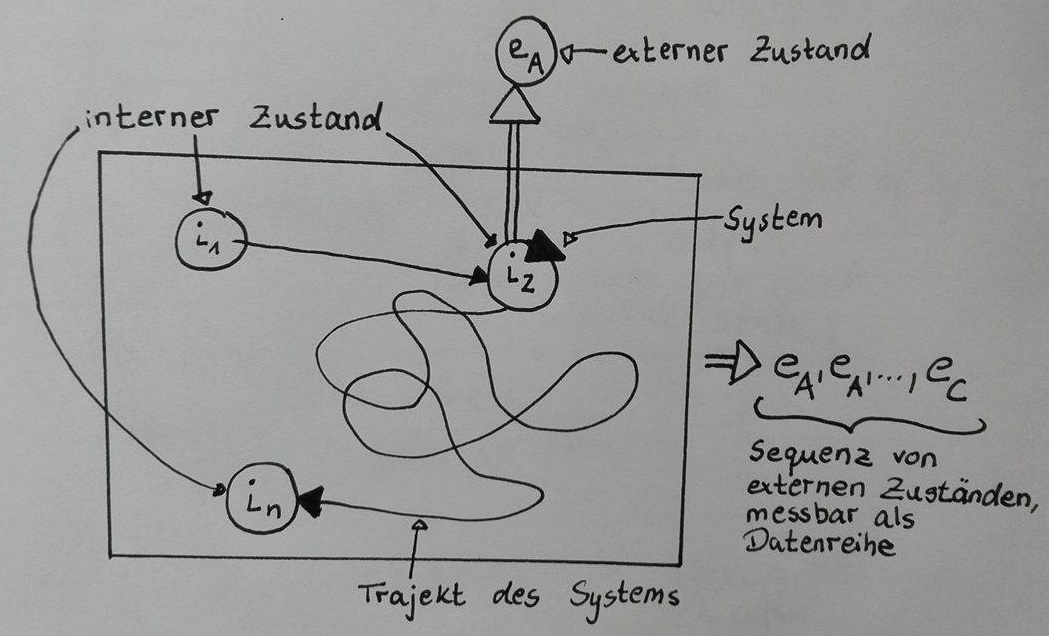 e_A externer Zustand
interner Zustand
i_1
System
i_2
e_A, e_A, ..., e_C
Sequenz von
externen Zuständen,
messbar als
Datenreihe
i_n
Trajekt des Systems